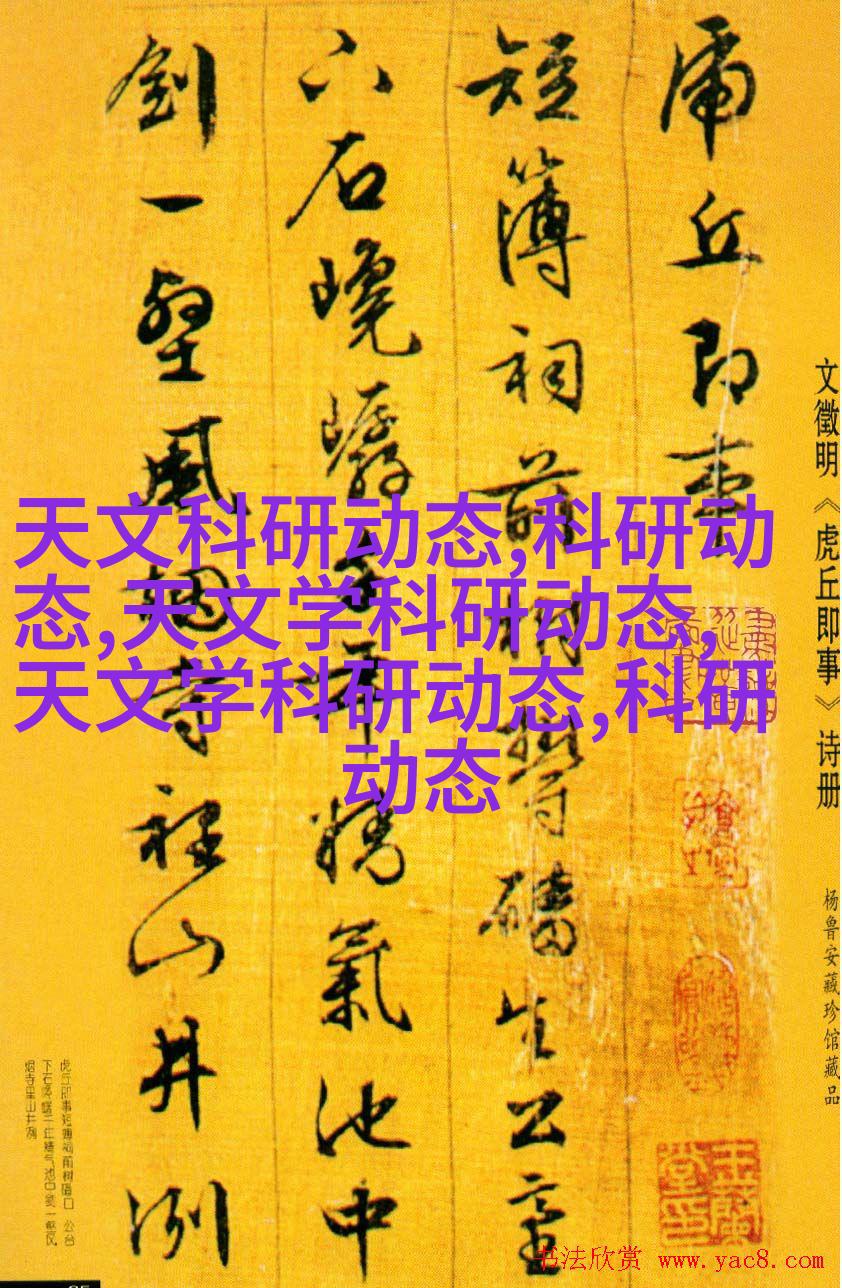 虎丘即事
短簿祠前樹生公臺
下石年精氣池中
劍一壑風寺裡山井冽
文徵明《虎丘即事》诗册
杨鲁安藏珍馆藏品
天文科研动态,科研动
态,天文学科研动态,
天文学科研动态,科研
动态
玉蘭堂印
虎丘即事短簿祠前树 公台
书法欣赏 www.yac8.com